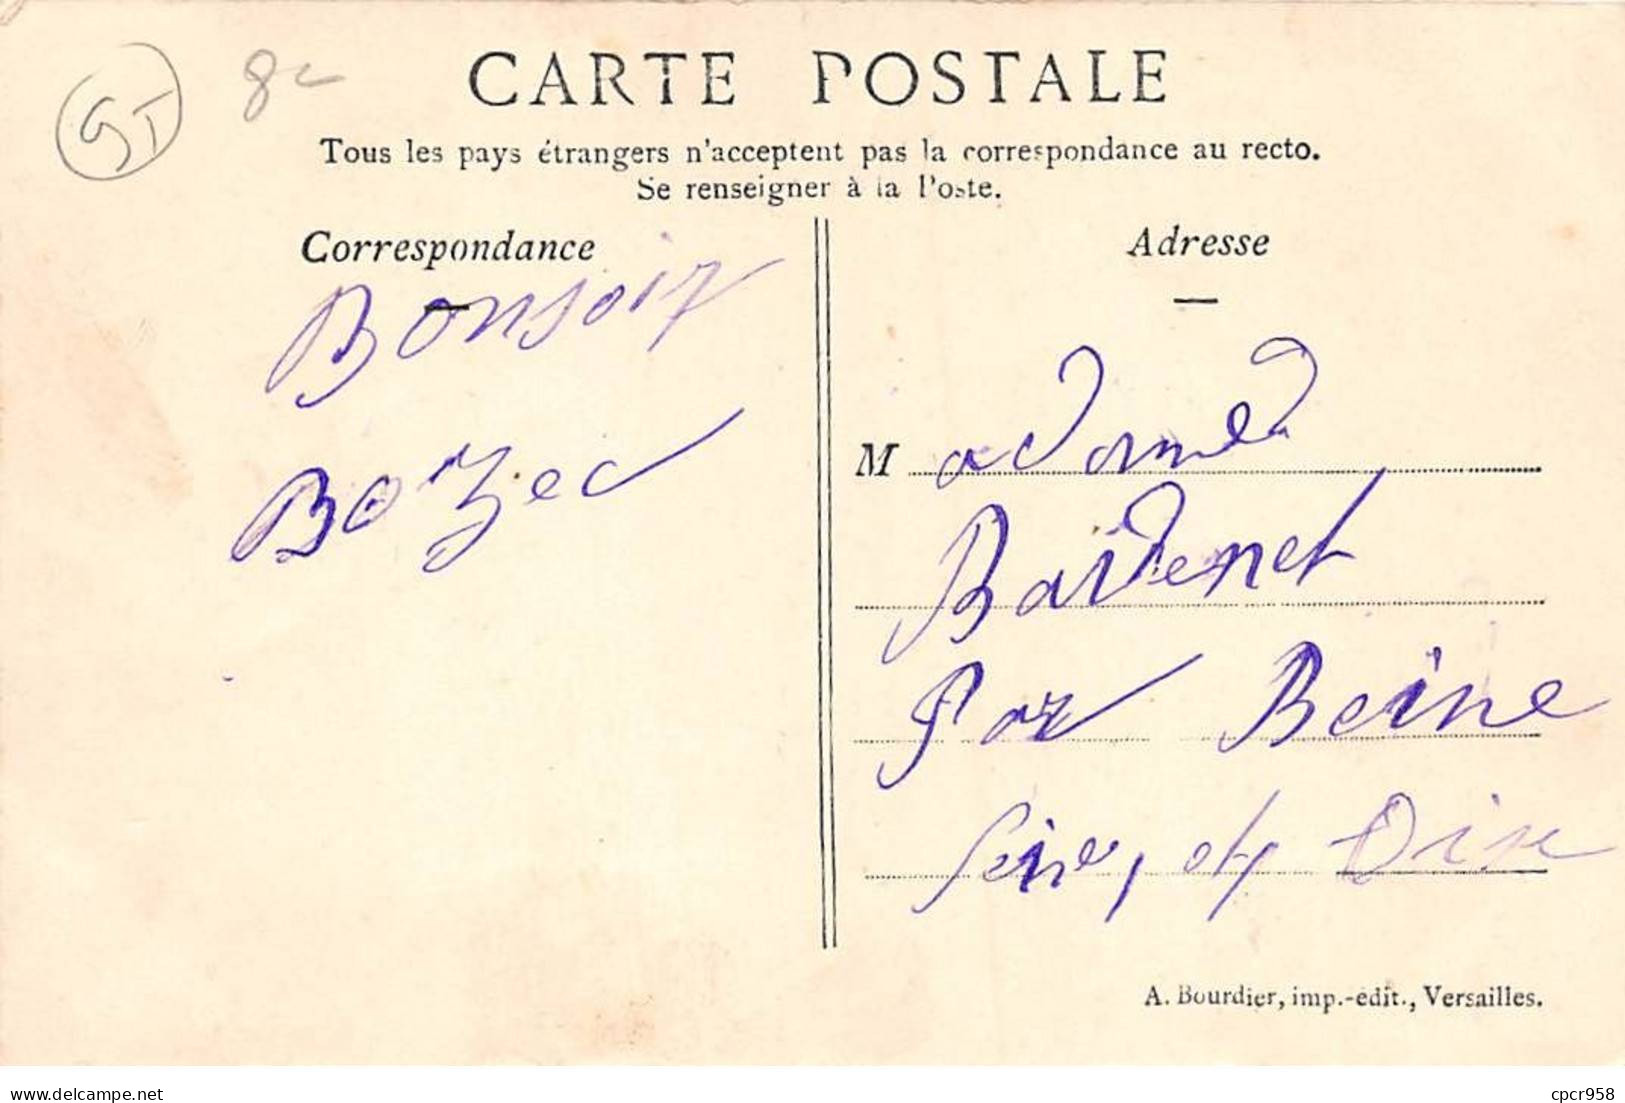 CARTE POSTALE
Tous les pays étrangers n'acceptent pas la correspondance au recto.
Se renseigner à la Poste.
Correspondance
Bonsoir
Bozec
Adresse
Madame
Bardenet
Par Beine
Seine et Oise
A. Bourdier, imp.-édit., Versailles.
cpcr958